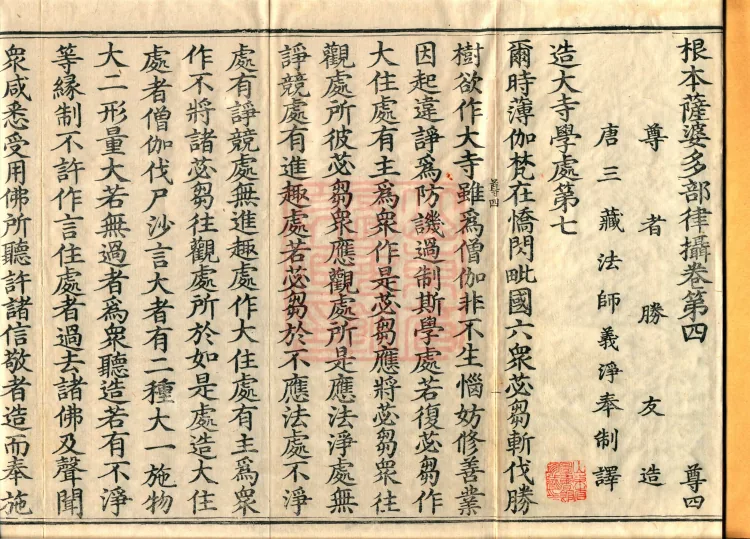 根本薩婆多部律攝卷第四 尊四
尊者勝友造
唐三藏法師義淨奉制譯
造大寺學處第七
爾時薄伽梵在憍閃毗國六衆苾芻斬伐勝
樹欲作大寺雖爲僧伽非不生惱妨修善業
尊四
因起違諍爲防譏過制斯學處若復苾芻作
大住處有主爲衆作是苾芻應將苾芻衆往
觀處所彼苾芻衆應觀處所是應法淨處無
諍競處有進趣處若苾芻於不應法處不淨
處有諍競處無進趣處作大住處有主爲衆
作不將諸苾芻往觀處所於如是處造大住
處者僧伽伐尸沙言大者有二種大一施物
大二形量大若無過者爲衆聽造若有不淨
等緣制不許作言住處者過去諸佛及聲聞
衆咸悉受用佛所聽許諸信敬者造而奉施